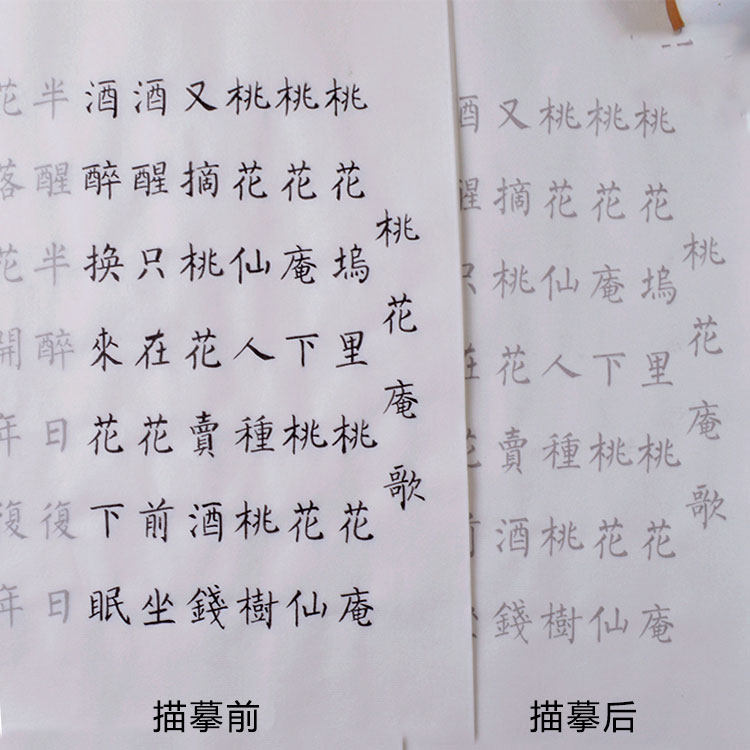 桃花庵歌
桃花塢里桃花庵
桃花庵下桃花仙
桃花仙人種桃樹
又摘桃花賣酒錢
酒醒只在花前坐
酒醉換來花下眠
半醒半醉日復日
花落花開年復年
桃花庵歌
桃花塢里桃花庵
桃花庵下桃花仙
桃花仙人種桃樹
又摘桃花賣酒錢
酒醒只在花前坐
描摹前
描摹后